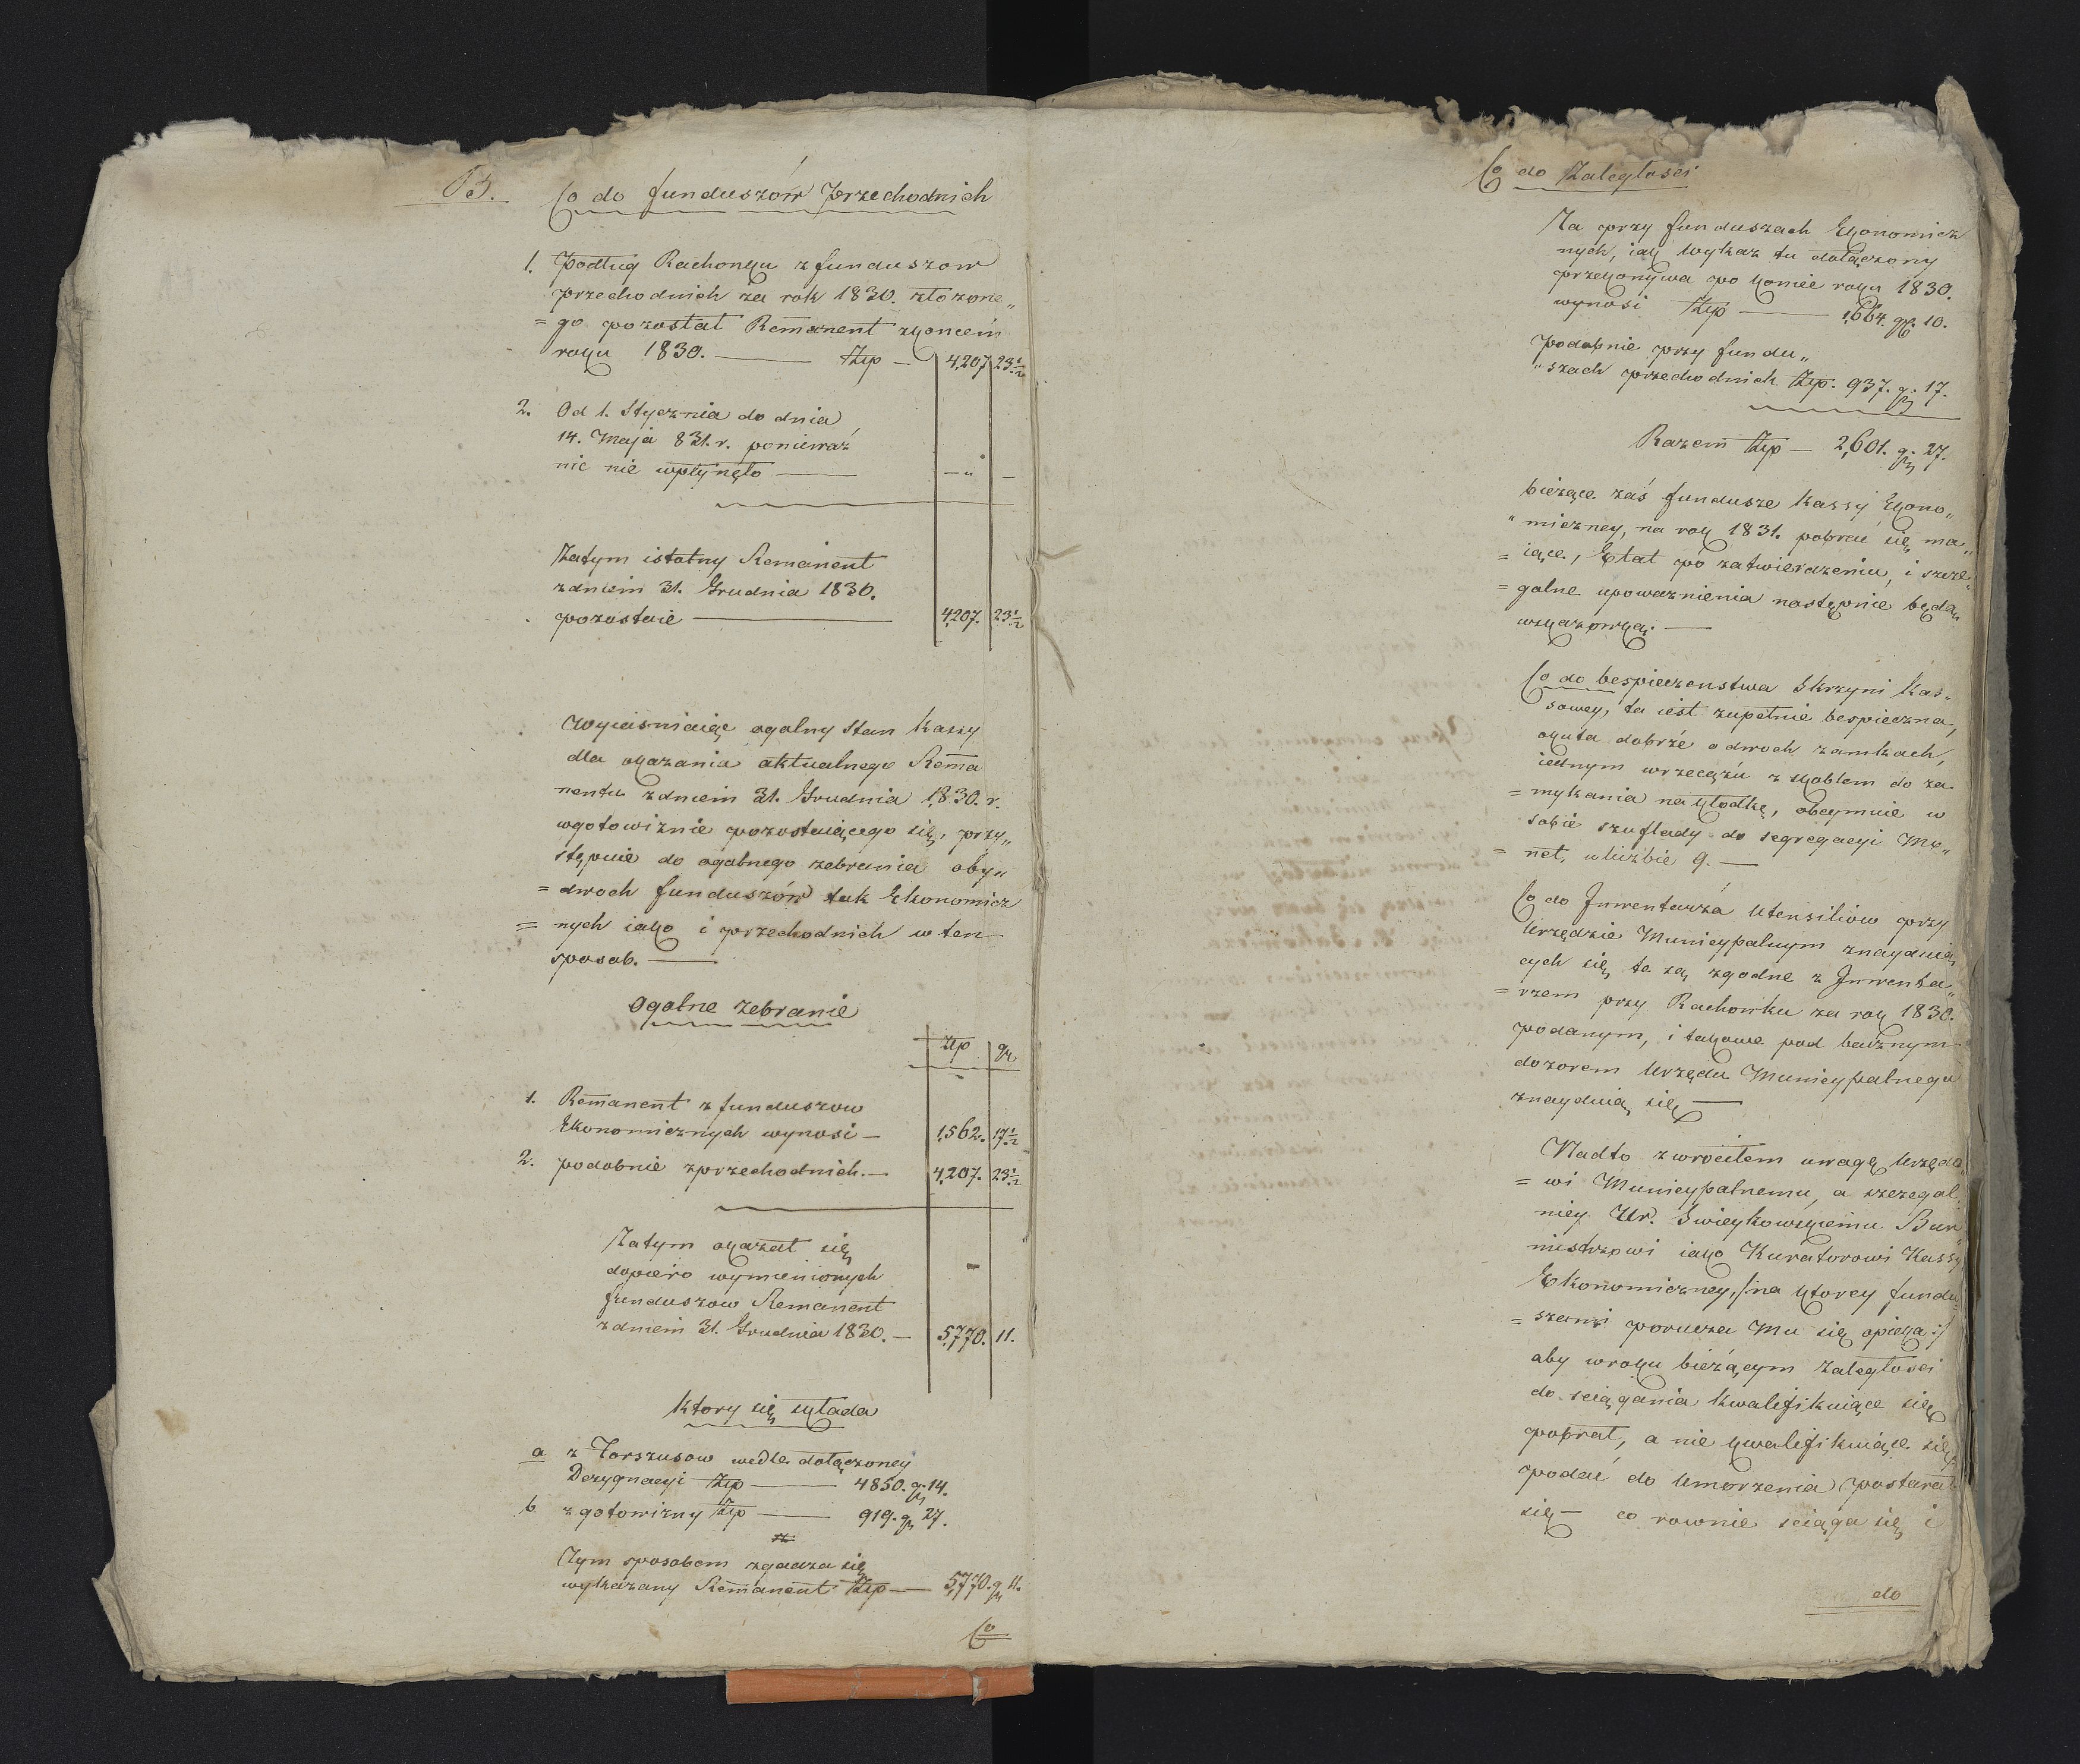 B. Co do funduszów Przechodnich
1. Podług Rachonku z funduszow
przechodnich za rok 1830. złozone„
= go pozostał Remanent zkoncem
roku 1830. — Złp — 4,207 23½
2. Od 1. Stycznia do dnia
14. Maja 831. r. poniewaź
nic nie wpłynęło — — „ —
Zatym istotny Remanent
zdniem 31. Grudnia 1830.
pozostaie — 4,207. 23½
Wyiasniaiąc ogolny Stan Kassy
dla okazania aktualnego Rema
nentu zdniem 31. Grudnia 1,830. r.
wgotowiznie pozostaiącego się, przy„
stępuie do ogolnego zebrania oby„
= dwoch funduszów tak Ekonomicz
= nych iako i przechodnich w ten
sposob. —
Ogolne zebranie
Złp gr
1. Remanent z funduszow
Ekonomicznych wynosi — 1,562. 17½
2. podobnie zprzechodnich. — 4,207. 23½
Zatym okazał się
dopiero wymienionych
funduszow Remanent
zdniem 31. Grudnia 1830. — 5,770. 11.
Ktory się składa
a z Forszusow wedle dołączoney
Dezygnacyi Złp — 4850. gr 14.
b z gotowizny Złp — 919. gr 27.
Tym sposobem zgadza się
wykazany Remanent Złp — 5,770. gr 11.
Co
Co do Zaległosci
Za przy funduszach Ekonomicz
nych, iak Wykaz tu dołączony
przekonywa po koniec roku 1830.
wynosi Złp — 1,664. gr. 10.
Podobnie przy fundu„
„szach przechodnich Złp. 937. gr. 17.
Razem Złp — 2,601. gr. 27.
bieżące zaś fundusze Kassy Ekono„
„miczney, na rok 1831. pobrać się ma„
= iące, Etat po zatwierdzeniu, i szcze„
= golne upoważnienia następnie będą
wskazowką. —
Co do bespieczenstwa Skrzyni Kas„
sowey, ta iest zupełnie bespieczna,
okuta dobrźe o dwoch zamkach,
iednym wrzecądzu z skoblem do za
= mykania na kłodkę, obeymuie w
sobie szuflady do segregacyi Mo„
= net, wliczbie 9. —
Co do Inwentarzá Utensiliow przy
Urzędzie Municypalnym znayduią
cych się, te są zgodne z Inwenta„
= rzem przy Rachonku za rok 1830.
podanym, i takowe pod bacznym
dozorem Urzędu Municypalnego
znayduią się —
Nadto zwrociłem uwagę Urzędo„
= wi Municypalnemu, a szczegol„
niey Ur. Świeykowskiemu Bur„
mistrzowi iako Kuratorowi Kassy
Ekonomiczney, /:na ktorey fundu„
= szami porucza Mu się opieka:/
aby wroku bieźącym zaległosci
do sciągania kwalifikuiące się
pobrał, a nie kwalifikuiące się
podać do Umorzenia postarał
się — co rownie sciąga się i
do